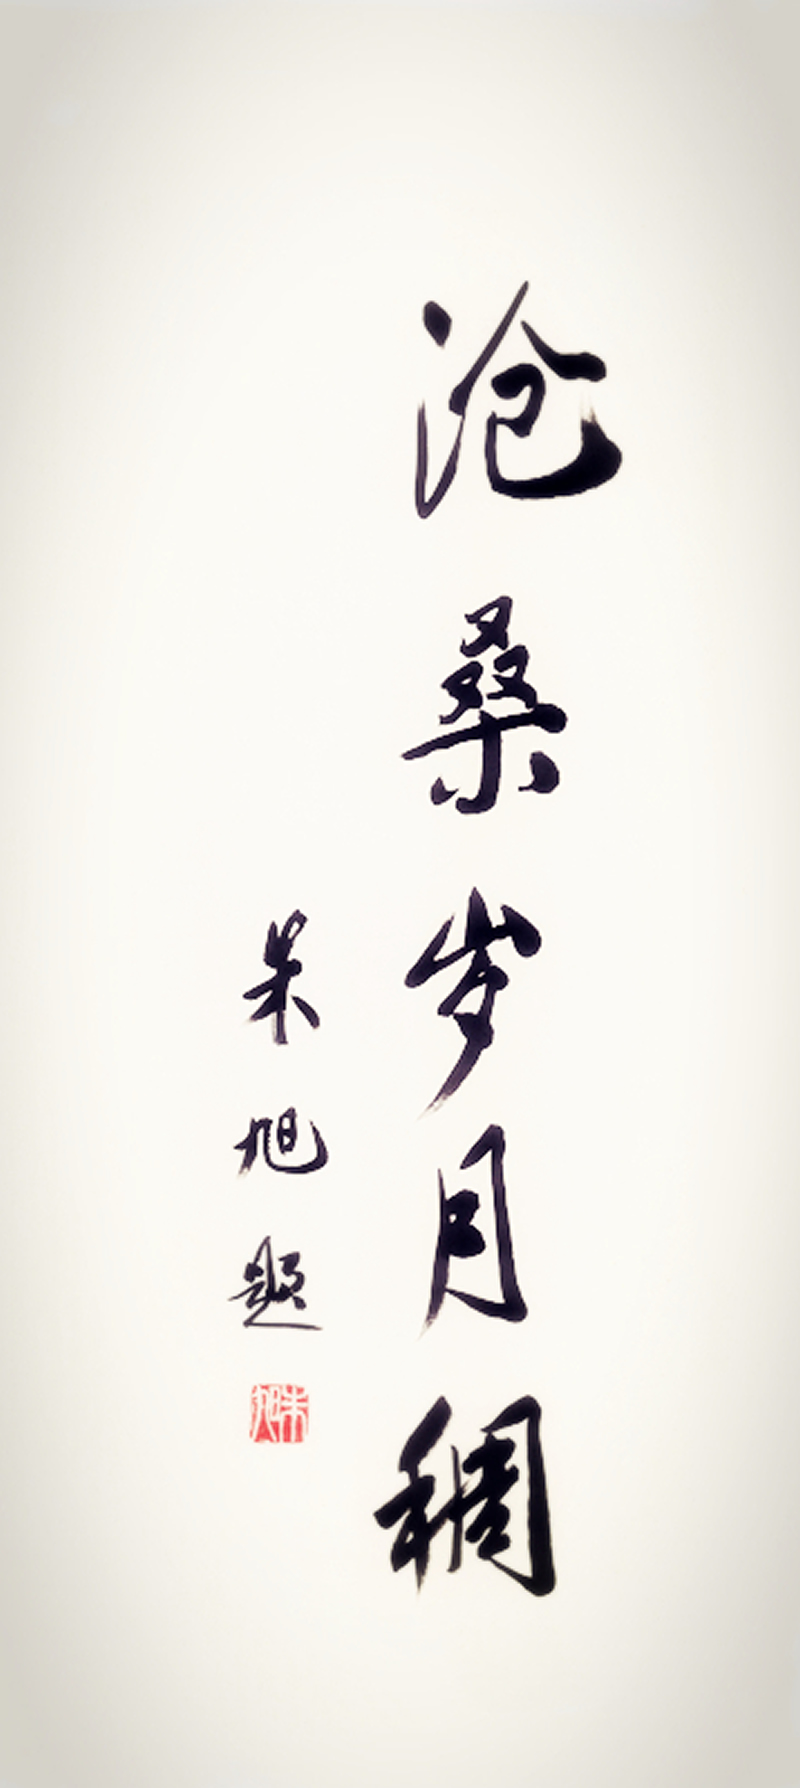 沧桑岁月稠
朱旭题
朱旭